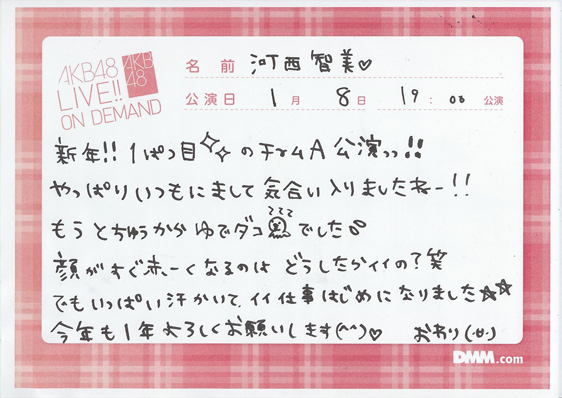 AKB48
LIVE!!
ON DEMAND
AKB
48
名前 河西智美♡
公演日 1月 8日 19:00 公演
新年!! 1ぱつ目✨のチームA公演っっ!!
やっぱりいつもにまして気合い入りましたねー!!
もうとちゅうからゆでダコでした。
顔がすぐ赤ーくなるのはどうしたらイイの?笑
でもいっぱい汗かいて、イイ仕事はじめになりました☆☆
今年も1年よろしくお願いします(^^)♡ おわり(·ω·)
DMM.com